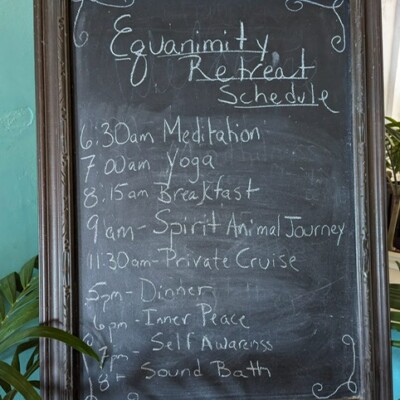 Equanimity
Retreat
Schedule
6:30am Meditation
7:00am Yoga
8.15am Breakfast
9am- Spirit Animal Journey
11:30am- Private Cruise
5pm - Dinner
6pm - Inner Peace
7pm - Self Awarenss
8 Sound Bath